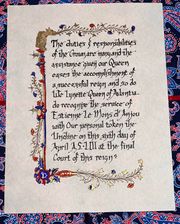 The duties & responsibilities
of the Crown are many, and the
assistance given our Queen
eases the accomplishment of
a successful reign and so do
We Lynette Queen of
do recognize the service of
Estienne Le Mons of Anjou
with Our personal token the
Undine on this sixth day of
April A.S. LIII at the final
Court of this reign